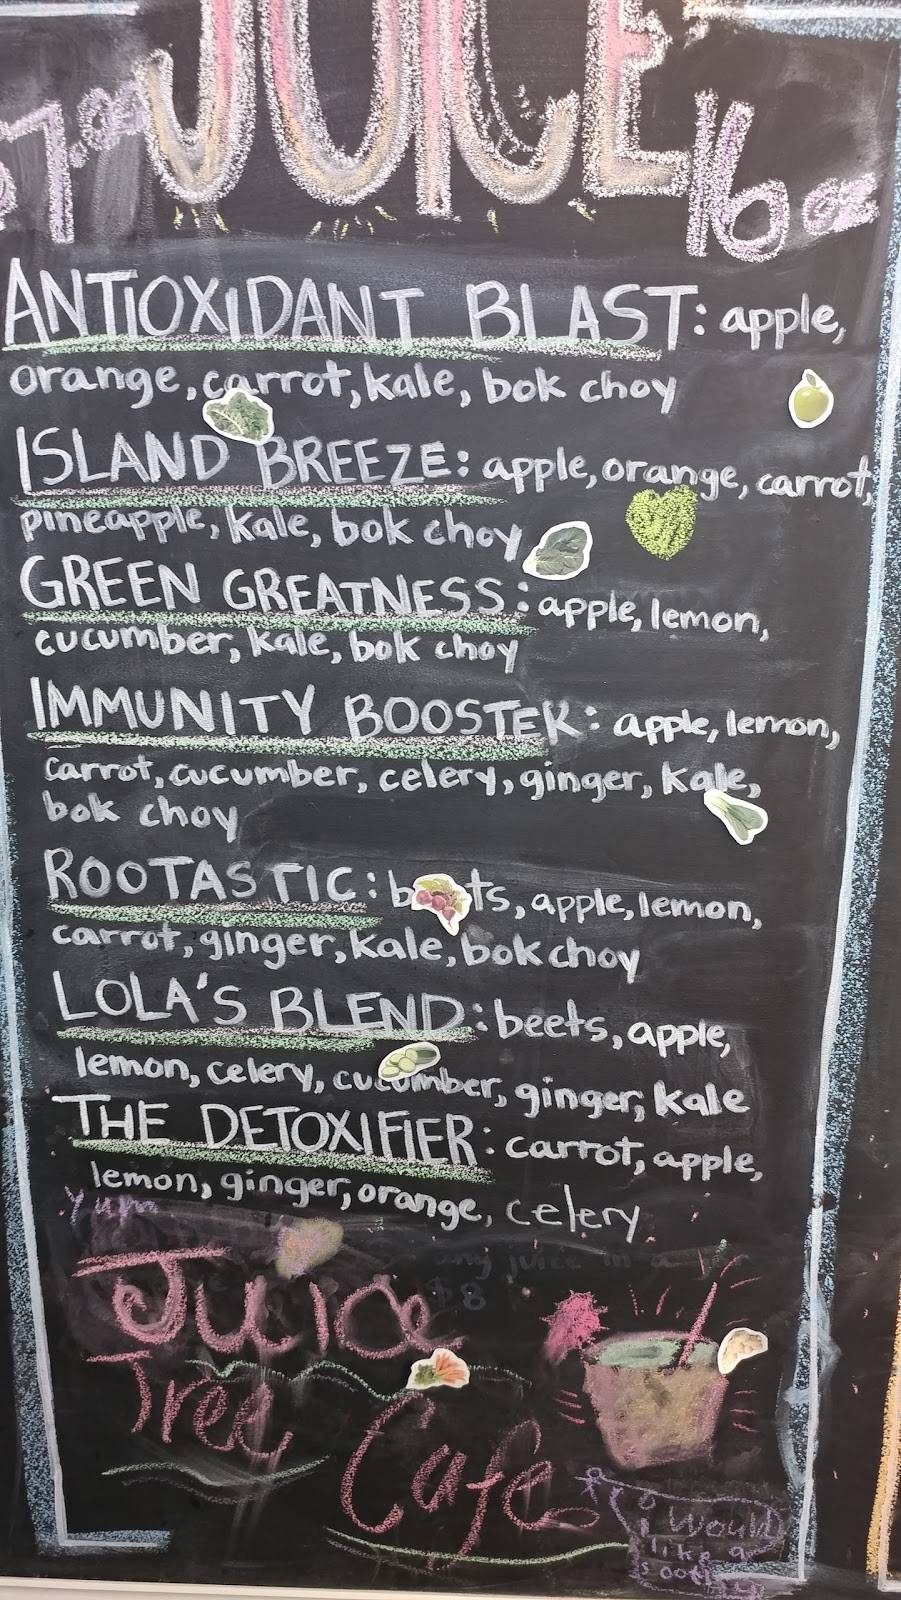 JUICE
$7.00
16 oz
ANTIOXIDANT BLAST: apple,
orange, carrot, kale, bok choy
ISLAND BREEZE: apple, orange, carrot,
pineapple, kale, bok choy
GREEN GREATNESS: apple, lemon,
cucumber, kale, bok choy
IMMUNITY BOOSTER: apple, lemon,
carrot, cucumber, celery, ginger, kale,
bok choy
ROOTASTIC: beets, apple, lemon,
carrot, ginger, kale, bok choy
LOLA'S BLEND: beets, apple,
lemon, celery, cucumber, ginger, kale
THE DETOXIFIER: carrot, apple,
lemon, ginger, orange, celery
Yum
juice in a
$8
Juice
Tree
Cafe
I would
like a